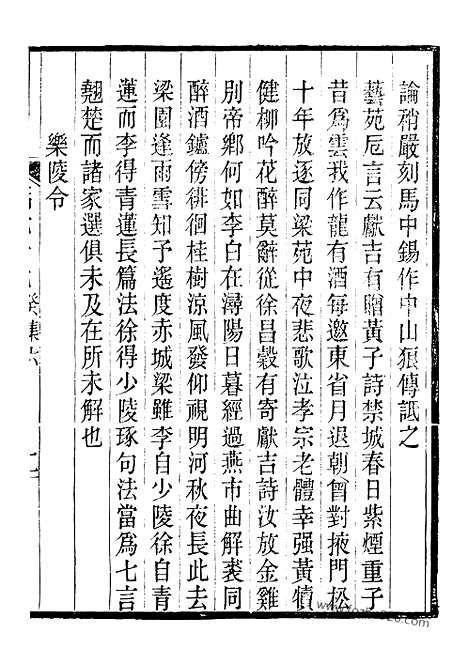 論稍嚴刻馬中錫作中山狼傳詆之
藝苑卮言云獻吉有贈黃子詩禁城春日紫煙重子
昔爲雲我作龍有酒每邀東省月退朝曾對掖門松
十年放逐同梁苑中夜悲歌泣孝宗老體幸强黃犢
健柳吟花醉莫辭從徐昌穀有寄獻吉詩汝放金雞
別帝鄉何如李白在潯陽日暮經過燕市曲解裘同
醉酒鑪傍徘徊桂樹涼風發仰視明河秋夜長此去
梁園逢雨雪知予遙度赤城梁雖李自少陵徐自青
蓮而李得青蓮長篇法徐得少陵琢句法當爲七言
翹楚而諸家選俱未及在所未解也
樂陵令